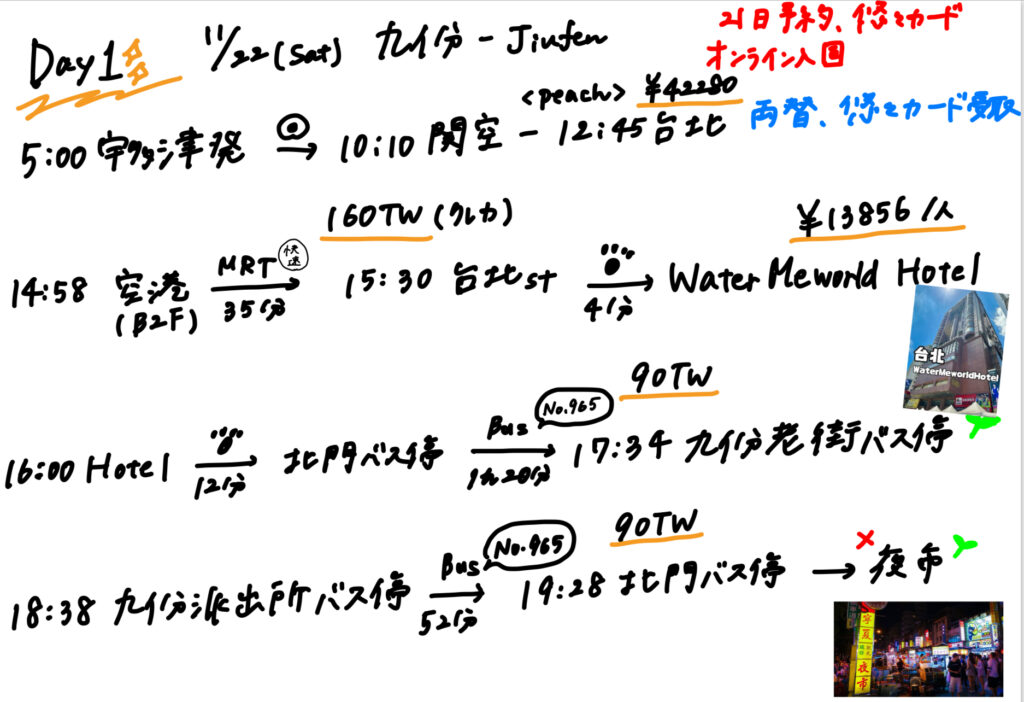 Day1 11/22(Sat) 九份 - Jiufen
21日予約、悠々カード
オンライン入国
<peach> ¥42280
両替、悠々カード受取
5:00 宇多津発 → 10:10 関空 - 12:45 台北
160TW (クレカ)
¥13856/人
14:58 空港 (B2F) MRT 快速 35分 → 15:30 台北st 4分 → Water Meworld Hotel
台北
WaterMeworldHotel
90TW
16:00 Hotel 12分 → 北門バス停 Bus No.965 1h20分 → 17:34 九份老街バス停
90TW
18:38 九份派出所バス停 Bus No.965 52分 → 19:28 北門バス停 → × 夜市
寧夏
夜市